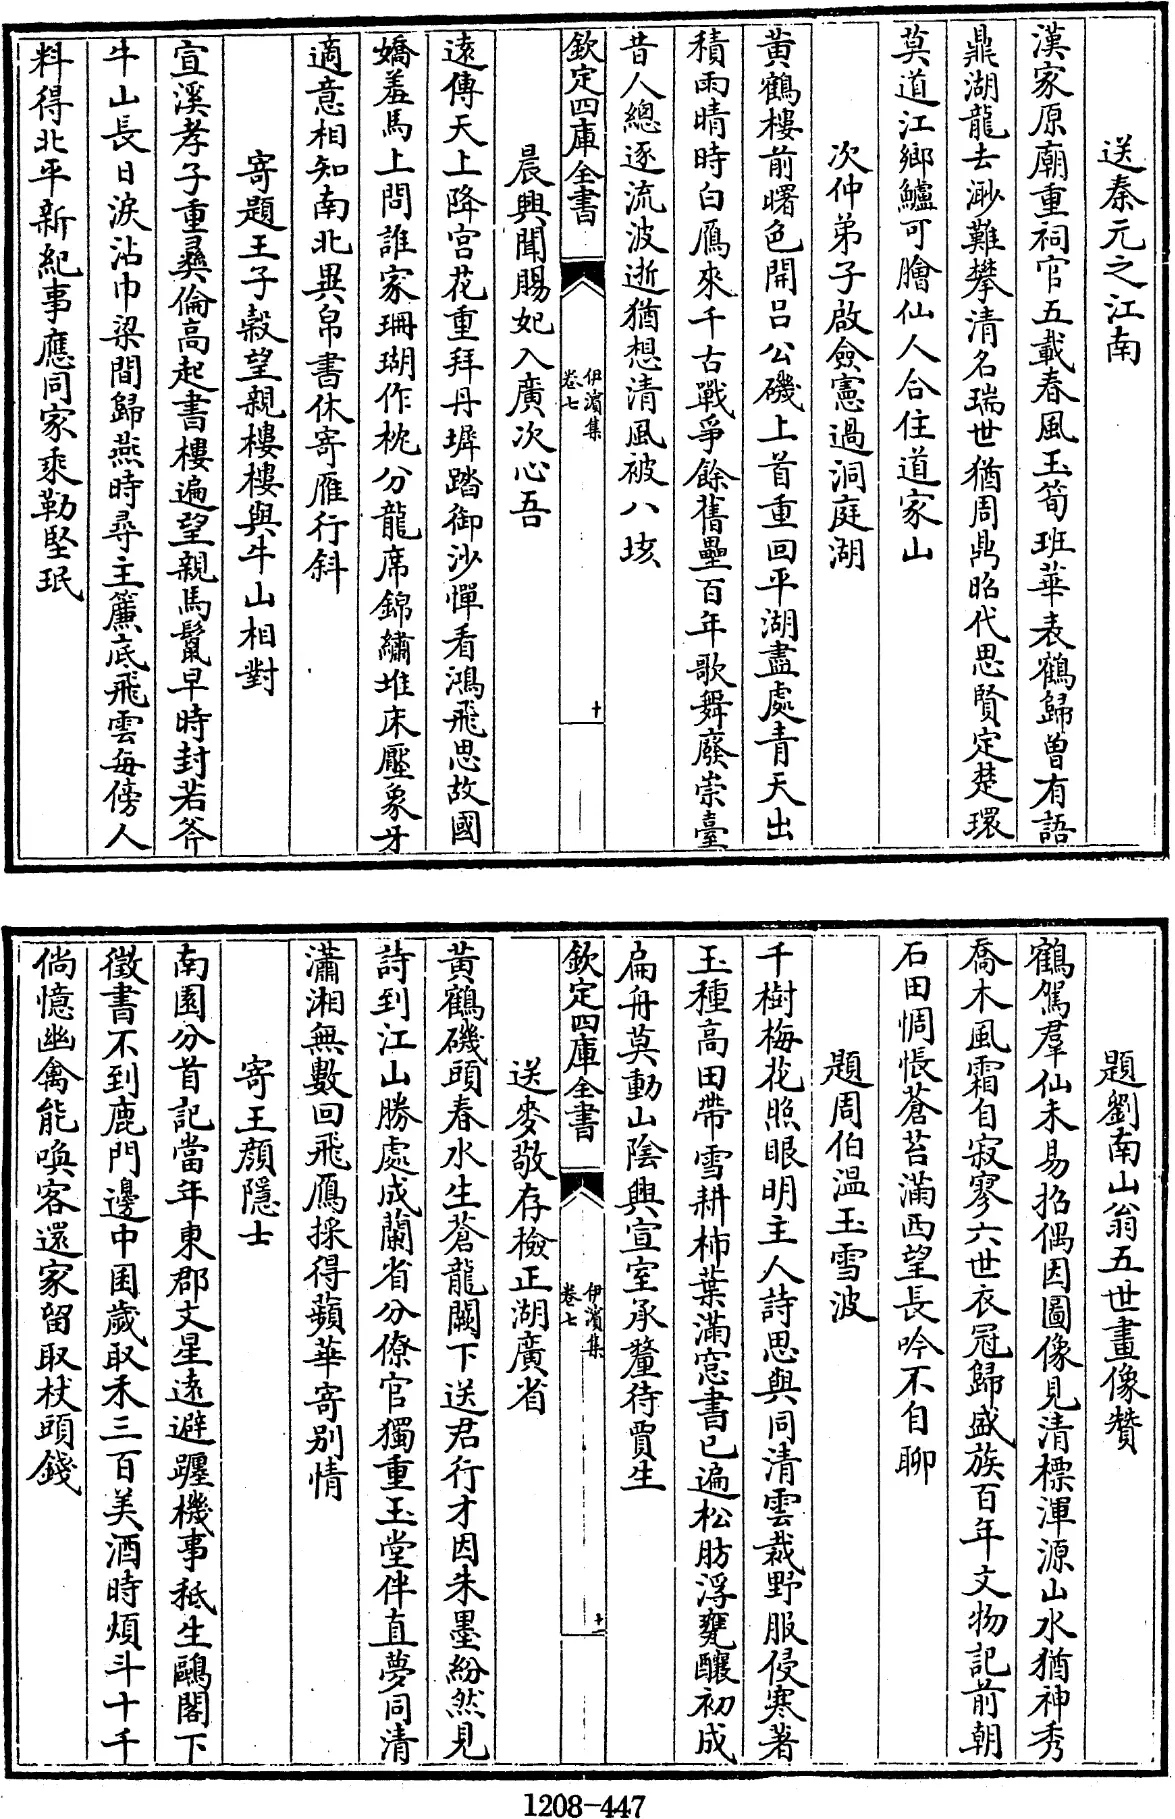 送秦元之江南
漢家原廟重祠官五載春風玉筍班華表鶴歸曽有語
鼎湖龍去渺難攀清名瑞世猶周鼎昭代思賢定楚環
莫道江鄉鱸可膾仙人合住道家山
次仲弟子啟僉憲過洞庭湖
黄鶴樓前曙色開吕公磯上首重回平湖盡處青天出
積雨晴時白鴈來千古戰爭餘舊壘百年歌舞廢崇臺
昔人總逐流波逝猶想清風被八垓
欽定四庫全書
伊濱集
卷七
十
晨興聞賜妃入廣次心吾
遠傳天上降宫花重拜丹墀踏御沙憚看鴻飛思故國
嬌羞馬上問誰家珊瑚作枕分龍席錦繡堆床壓象牙
適意相知南北異帛書休寄雁行斜
寄題王子穀望親樓樓與牛山相對
宣溪孝子重彛倫高起書樓遍望親馬鬛早時封若斧
牛山長日淚沾巾梁間歸燕時尋主簾底飛雲每傍人
料得北平新紀事應同家乘勒堅珉
題劉南山翁五世畫像贊
鶴駕羣仙未易招偶因圖像見清標渾源山水猶神秀
喬木風霜自寂寥六世衣冠歸盛族百年文物記前朝
石田惆悵蒼苔滿西望長吟不自聊
題周伯温玉雪波
千樹梅花照眼明主人詩思與同清雲裁野服侵寒著
玉種高田帶雪耕柿葉滿窓書已遍松肪浮甕釀初成
扁舟莫動山陰興宣室承釐待賈生
欽定四庫全書
伊濱集
卷七
十一
送麥敬存檢正湖廣省
黄鶴磯頭春水生蒼龍闕下送君行才因朱墨紛然見
詩到江山勝處成蘭省分僚官獨重玉堂伴直夢同清
瀟湘無數回飛鴈採得蘋華寄别情
寄王顔隱士
南園分首記當年東郡文星遠避躔機事秪生鷗閣下
徵書不到鹿門邊中園歲取禾三百美酒時煩斗十千
倘憶幽禽能喚客還家留取杖頭錢
1208-447